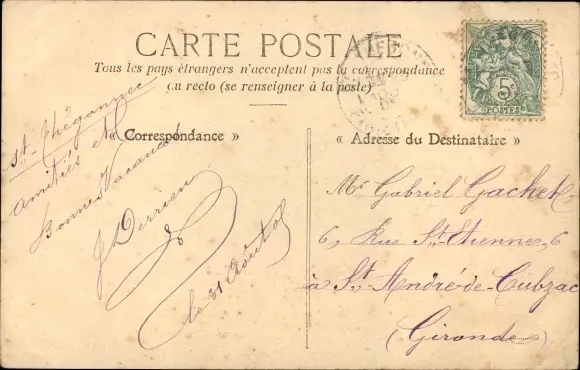 CARTE POSTALE
Tous les pays étrangers n'acceptent pas la correspondance
au recto (se renseigner à la poste)
« Correspondance »
« Adresse du Destinataire »
5c
POSTES
St-Thégonnec
Amitiés et
Bonnes Vacances
J Derrien
le 31 Août
Mr Gabriel Gachet
6, Rue St-Etienne, 6
à St André-de-Cubzac
(Gironde)